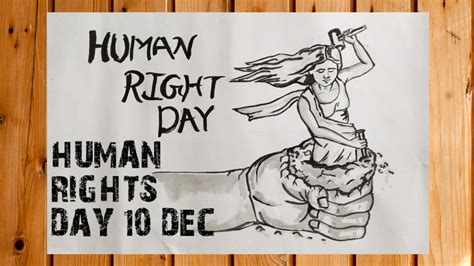 HUMAN
RIGHT
DAY
HUMAN
RIGHTS
DAY 10 DEC